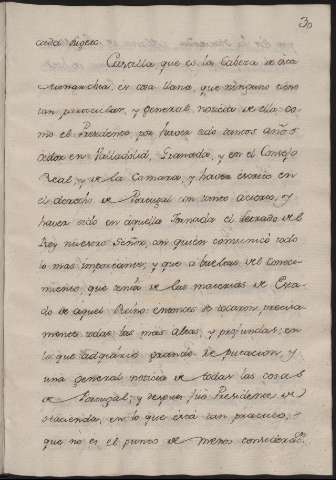 30
cada sugeto.
Castilla que es la Cabeza de esta
Monarchia, es cosa llana, que ninguno tiene
tan particular, y general noticia de ella co-
mo el Presidente por haver sido tantos años
oidor en Valladolid, Granada, y en el Consejo
Real, y de la Camara, y haver escrito en
el derecho de Portugal con tanto acierto, y
haver sido en aquella Jornada el de
Rey nuestro Señor, con quien comunicó todo
lo mas importante, y que a bueltas del conoci-
miento, que tenía de las materias de Esta-
do de aquel Reino entonces se tocaron precisa-
mente todas las mas altas, y profundas; en
lo que adquirió grande reputacion, y
una general noticia de todas las cosas
de Portugal; y despues fué Presidente de
Hacienda, en lo que está tan practico,
que no es el punto de menos consideraz.on